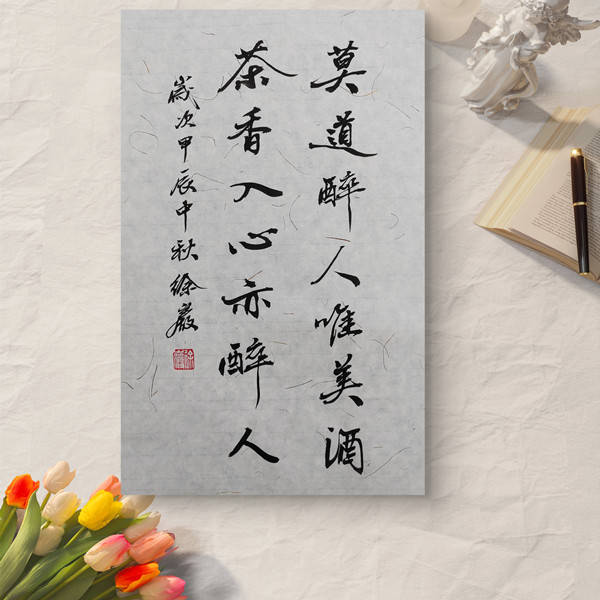 莫道醉人唯美酒
茶香入心亦醉人
歲次甲辰中秋徐嚴